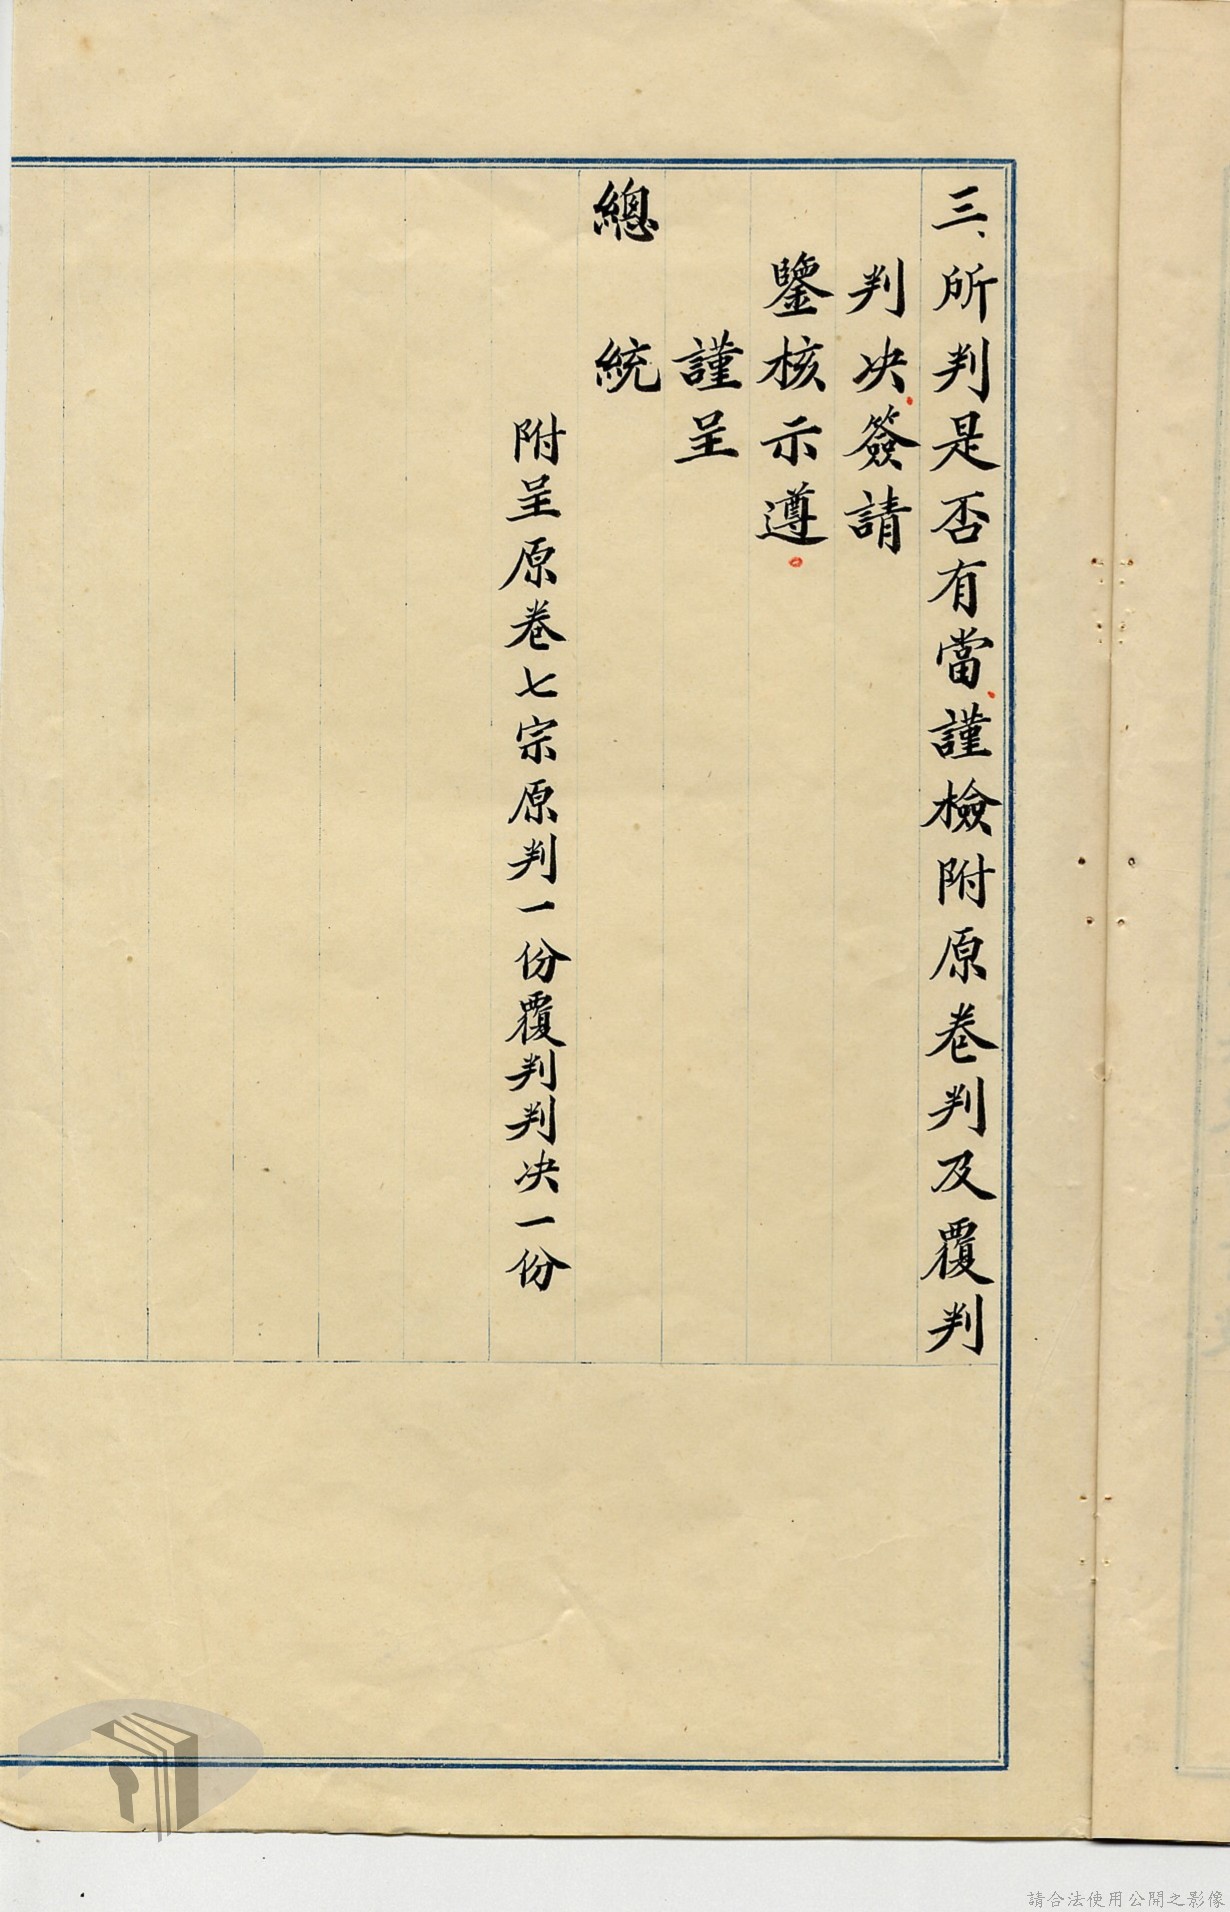 三、所判是否有當、謹檢附原卷判及覆判
判决、簽請
鑒核示遵。
謹呈
總統
附呈原卷七宗原判一份覆判判决一份
請合法使用公開之影像